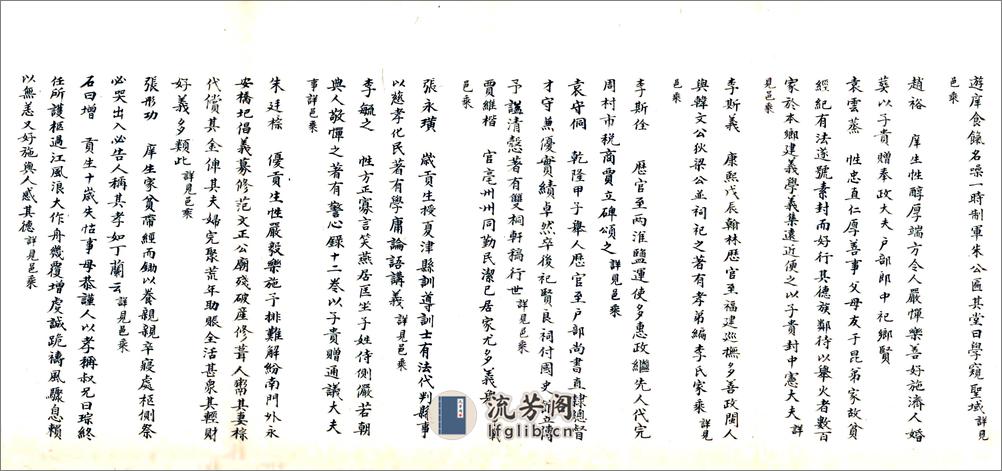 遊庠食餼名噪一時制軍朱公匾其堂曰學窺聖域詳見
邑乘
趙裕 庠生性醇厚端方令人嚴憚樂善好施濟人婚
葬以子貴贈奉政大夫戶部郎中祀鄉賢
袁雲蒸 性忠直仁厚善事父母友于昆弟家故貧
經紀有法遂號素封而好行其德族鄰待以舉火者數百
家於本鄉建義學義集遠近便之以子貴封中憲大夫詳
見邑乘
李斯義 康熙戊辰翰林歷官至福建巡撫多善政閩人
與韓文公狄梁公並祠祀之著有孝弟編李氏家乘詳見
邑乘
李斯佺 歷官至兩淮鹽運使多惠政繼先人代完
周村市稅商賈立碑頌之詳見邑乘
袁守侗 乾隆甲子舉人歷官至戶部尚書直隸總督
才守兼優實績卓然卒後祀賢良祠付國史館立傳
予謚清慤著有雙桐軒稿行世詳見邑乘
賈維楷 官亳州州同勤民潔己居家尤多義舉
邑乘
張永璜 歲貢生授夏津縣訓導訓士有法代判縣事
以慈孝化民著有學庸論語講義詳見邑乘
李毓之 性方正寡言笑燕居匡坐子姓侍側儼若朝
典人敬憚之著有警心錄十二卷以子貴贈通議大夫
事詳邑乘
朱廷棕 優貢生性嚴毅樂施予排難解紛南門外永
安橋圮倡義募修范文正公廟殘破產修葺人鬻其妻棕
代償其金俾其夫婦完聚荒年助賑全活甚衆其輕財
好義多類此詳見邑乘
張彤功 庠生家貧帶經而鋤以養親親卒寢處柩側祭
必哭出入必告人稱其孝如丁蘭云詳見邑乘
石曰增 貢生十歲失怙事母恭謹人以孝稱叔兄曰琮終
任所護柩過江風浪大作舟幾覆增虔誠跪禱風驟息賴
以無恙又好施與人感其德詳見邑乘
流芳阁
lfglib.cn